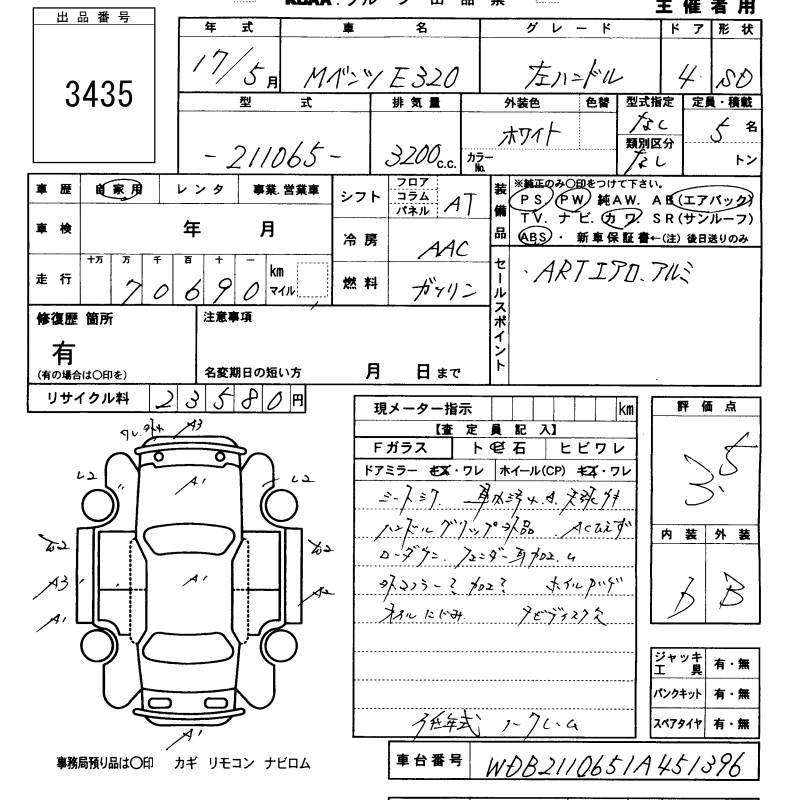 出品番号
3435
主催者用
年式 車名 グレード ドア 形状
17/5月 Mベンツ E320 左ハンドル 4 SD
型式 排気量 外装色 色替 型式指定 定員・積載
-211065- 3200c.c. ホワイト カラーNo. なし 類別区分 なし 5名 トン
車歴 自家用 レンタ 事業.営業車
車検 年 月
走行 十万 万 千 百 十 一 km マイル
70690
シフト フロア コラム パネル AT
冷房 AAC
燃料 ガソリン
装備品 ※純正のみ〇印をつけて下さい。
PS PW 純AW. AB(エアバック)
TV. ナビ. カワ SR(サンルーフ)
ABS・ 新車保証書←(注) 後日送りのみ
セールスポイント
ARTエアロ.アルミ
修復歴 箇所
有
(有の場合は〇印を)
注意事項
名変期日の短い方 月 日まで
リサイクル料 23580円
現メーター指示 km
【査定員記入】
Fガラス トビ石 ヒビワレ
ドアミラー キズ・ワレ ホイール(CP) キズ・ワレ
ハンドルグリップ社外品 ACひえず
オイルにじみ ナビディスク欠
低年式 ノークレーム
評価点
3.5
内装 外装
b B
ジャッキ工具 有・無
パンクキット 有・無
スペアタイヤ 有・無
A3
A1
A1
A3
A2
A1
A1
事務局預り品は〇印 カギ リモコン ナビロム
車台番号 WDB2110651A451396